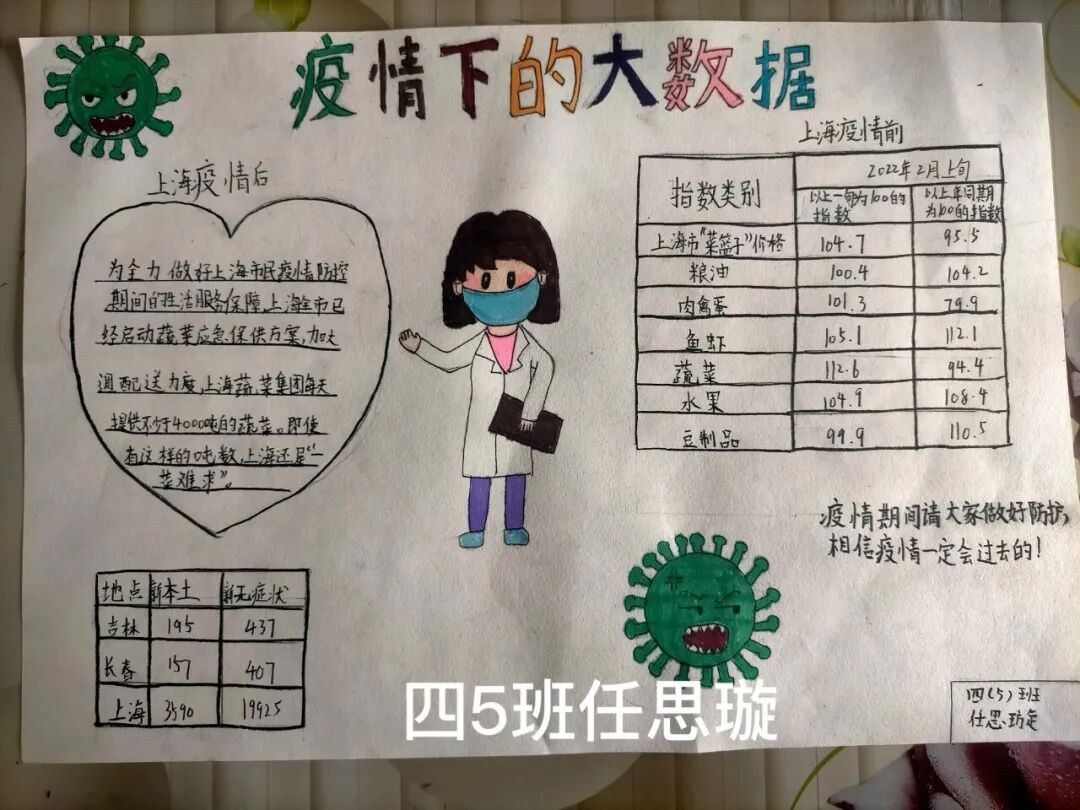 疫情下的大数据
上海疫情后
为全力做好上海市民疫情防控
期间的生活服务保障,上海全市已
经启动蔬菜应急保供方案,加大
调配送力度,上海蔬菜集团每天
提供不少于4000吨的蔬菜。即使
有这样的吨数,上海还是“一
菜难求”。
上海疫情前
指数类别 2022年2月上旬
以上一旬为100的指数 以上年同期为100的指数
上海市“菜篮子”价格 104.7 95.5
粮油 100.4 104.2
肉禽蛋 101.3 79.9
鱼虾 105.1 112.1
蔬菜 112.6 94.4
水果 104.9 108.4
豆制品 99.9 110.5
疫情期间请大家做好防护,
相信疫情一定会过去的!
地点 新本土 新无症状
吉林 195 437
长春 157 407
上海 3590 19925
四5班任思璇
四(5)班
任思璇